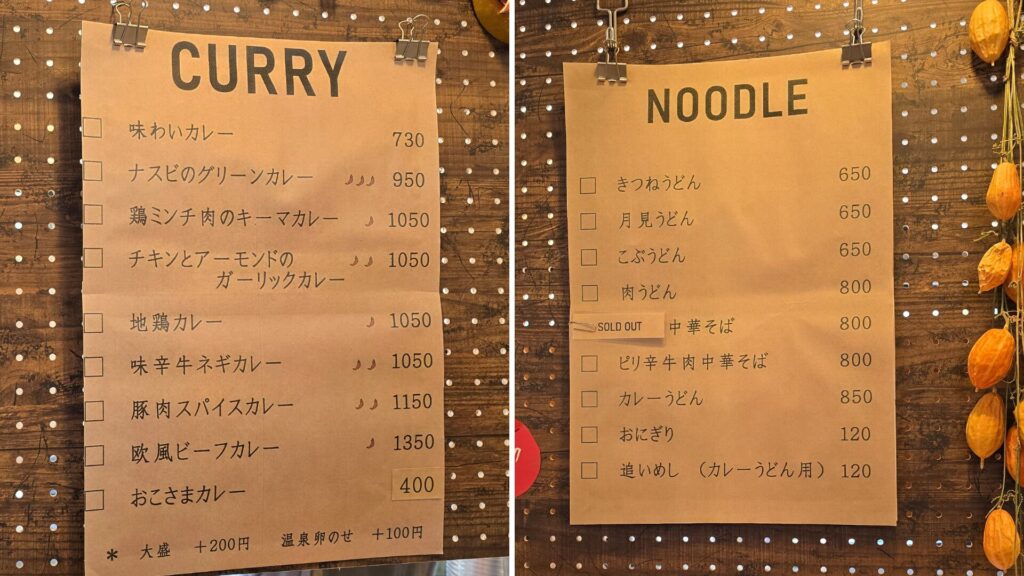 CURRY
味わいカレー 730
ナスビのグリーンカレー 950
鶏ミンチ肉のキーマカレー 1050
チキンとアーモンドの 1050
ガーリックカレー
地鶏カレー 1050
味辛牛ネギカレー 1050
豚肉スパイスカレー 1150
欧風ビーフカレー 1350
おこさまカレー 400
* 大盛 +200円 温泉卵のせ +100円
NOODLE
きつねうどん 650
月見うどん 650
こぶうどん 650
肉うどん 800
SOLD OUT 中華そば 800
ピリ辛牛肉中華そば 800
カレーうどん 850
おにぎり 120
追いめし (カレーうどん用) 120